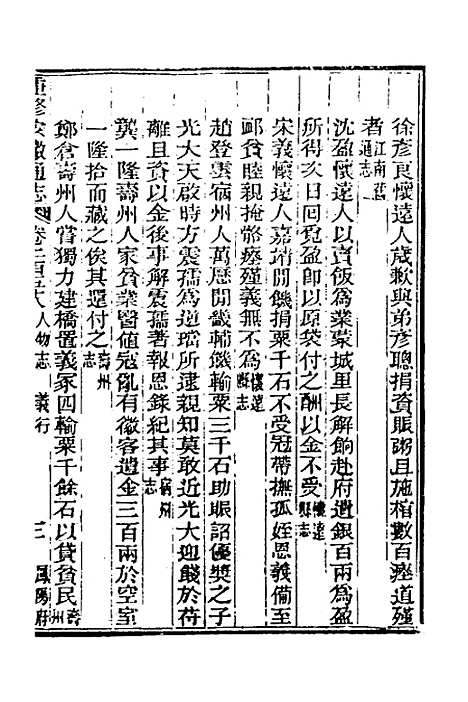 徐彥良懷遠人歲歉與弟彥聰捐資賑粥且施棺數百瘞道殣
者江南舊通志
沈盈懷遠人以賣飯爲業蒙城里長解餉赴府遺銀百兩爲盈
所得次日回覓盈卽以原袋付之酬以金不受懷遠縣志
宋義懷遠人嘉靖閒饑捐粟千石不受冠帶撫孤姪恩義備至
卹貧睦親掩骼瘞殣義無不爲懷遠縣志
趙登雲宿州人萬歷閒畿輔饑輸粟三千石助賑詔優獎之子
光大天啟時方震孺爲逆璫所逮親知莫敢近光大迎餞於苻
離且資以金後事解震孺著報恩錄紀其事宿州志
龔一隆壽州人家貧業醫値寇亂有徽客遺金三百兩於空室
一隆拾而藏之俟其還付之壽州志
鄭倉壽州人嘗獨力建橋置義冢四輸粟千餘石以貸貧民壽州
重修安徽通志 卷二百五 人物志 義行 三 鳳陽府